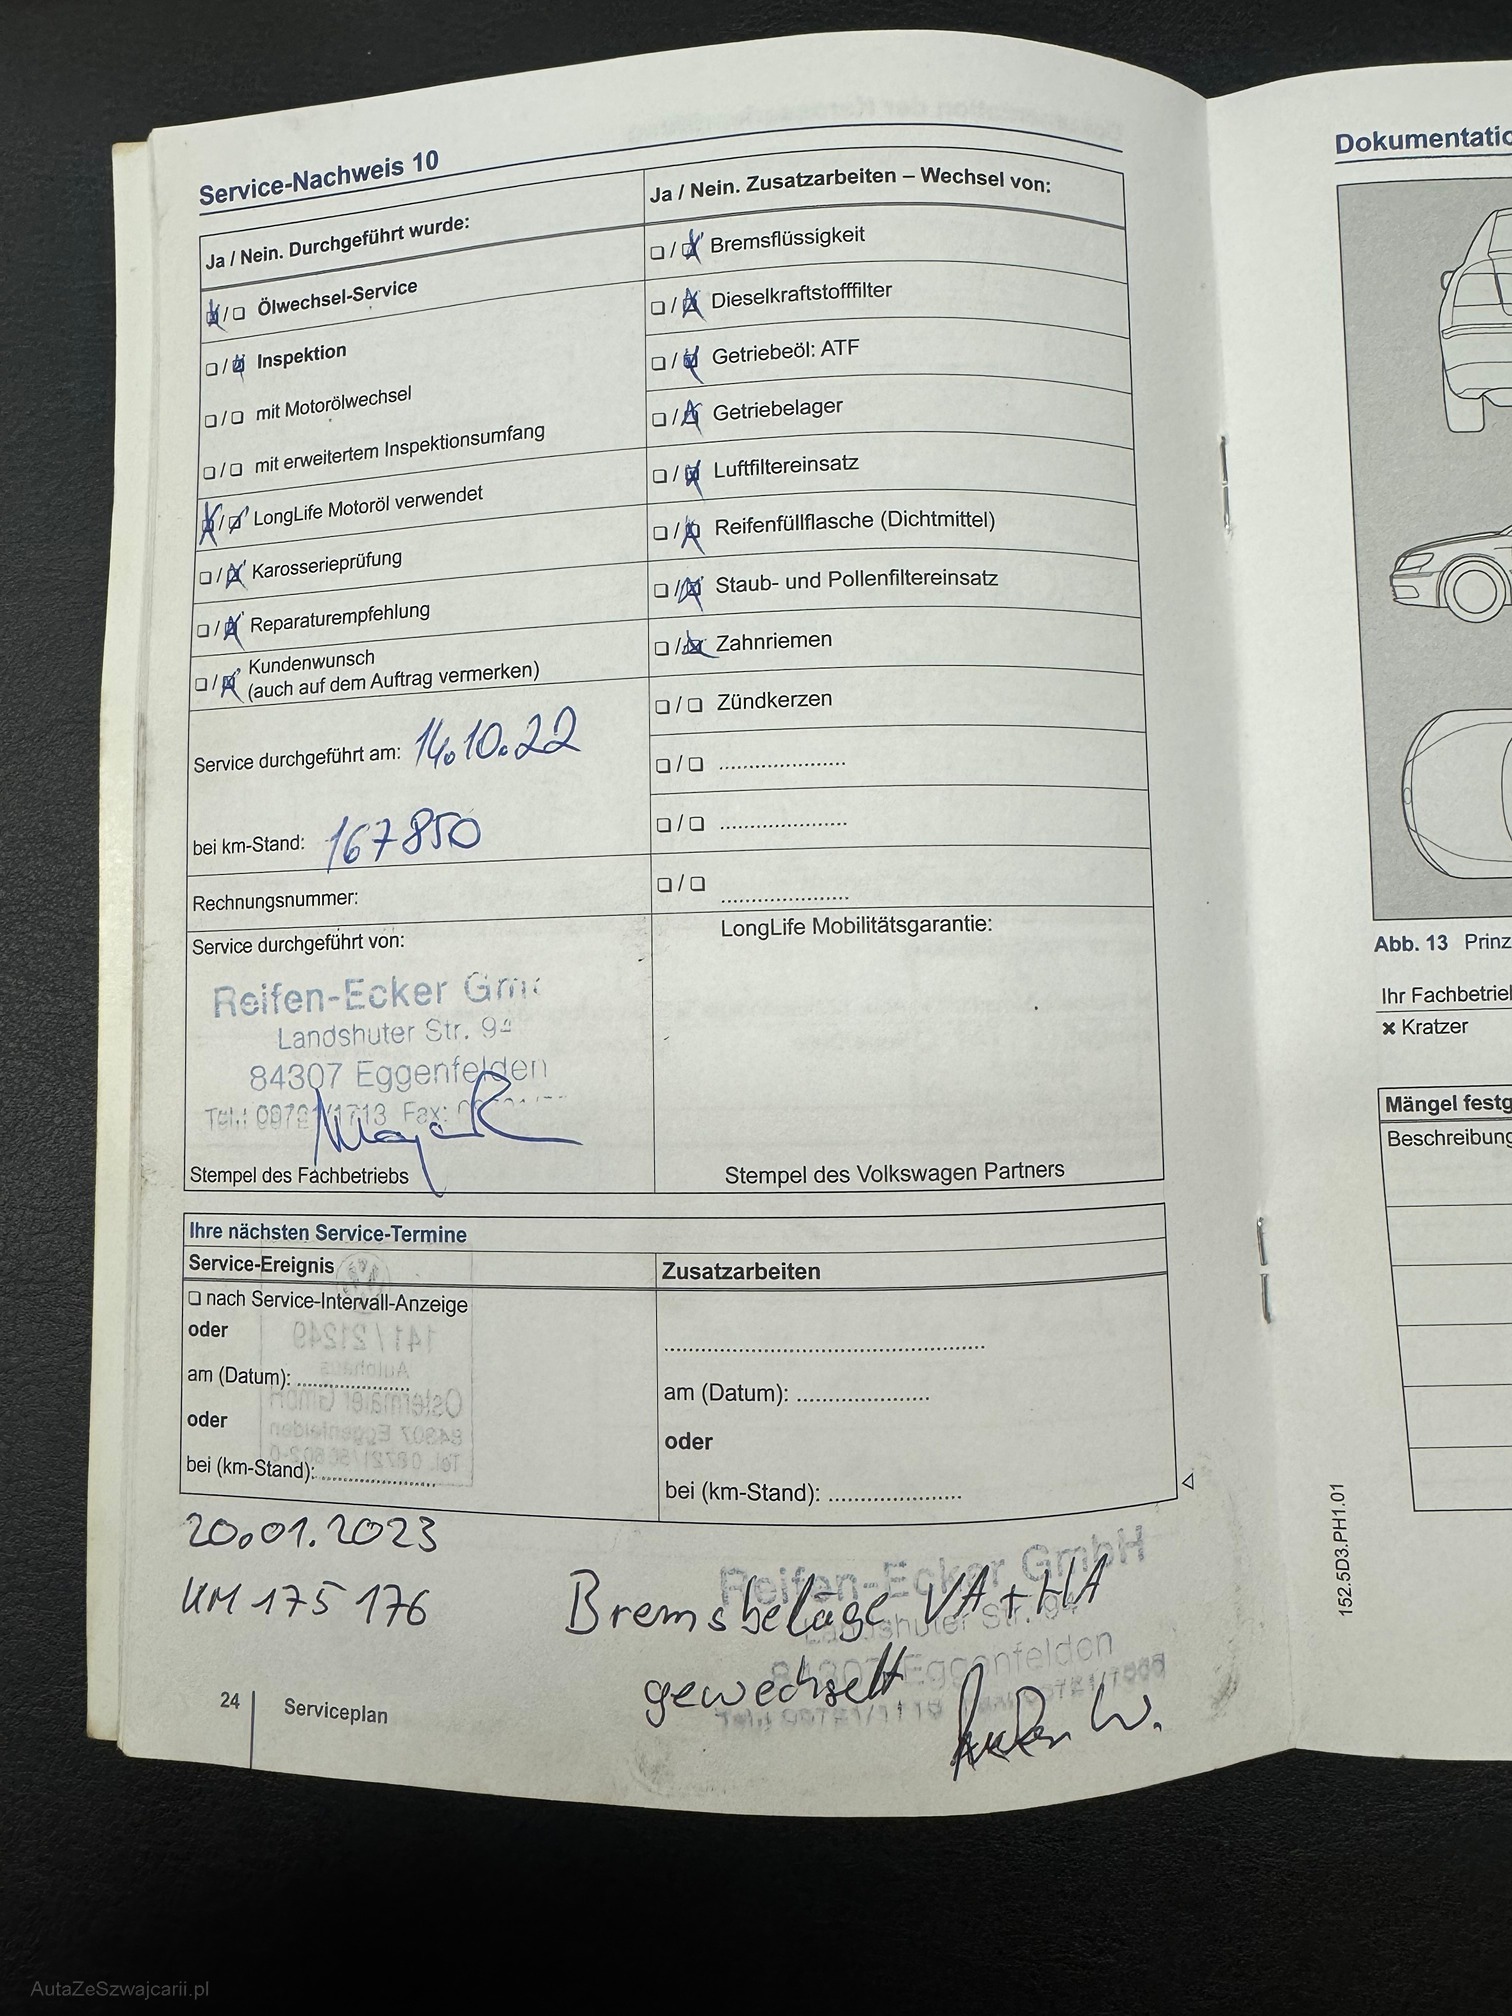 Service-Nachweis 10
Ja / Nein. Durchgeführt wurde:
❏ / ❏ Ölwechsel-Service
❏ / ❏ Inspektion
❏ / ❏ mit Motorölwechsel
❏ / ❏ mit erweitertem Inspektionsumfang
❏ / ❏ LongLife Motoröl verwendet
❏ / ❏ Karosserieprüfung
❏ / ❏ Reparaturempfehlung
❏ / ❏ Kundenwunsch
(auch auf dem Auftrag vermerken)
Service durchgeführt am: 14.10.22
bei km-Stand: 167850
Rechnungsnummer:
Service durchgeführt von:
Reifen-Ecker
Landshuter Str. 94
84307 Eggenfelden
Stempel des Fachbetriebs
Ja / Nein. Zusatzarbeiten – Wechsel von:
❏ / ❏ Bremsflüssigkeit
❏ / ❏ Dieselkraftstofffilter
❏ / ❏ Getriebeöl: ATF
❏ / ❏ Getriebelager
❏ / ❏ Luftfiltereinsatz
❏ / ❏ Reifenfüllflasche (Dichtmittel)
❏ / ❏ Staub- und Pollenfiltereinsatz
❏ / ❏ Zahnriemen
❏ / ❏ Zündkerzen
❏ / ❏ .....................
❏ / ❏ .....................
❏ / ❏ .....................
LongLife Mobilitätsgarantie:
Stempel des Volkswagen Partners
Ihre nächsten Service-Termine
Service-Ereignis
❏ nach Service-Intervall-Anzeige
oder
am (Datum): ....................
oder
bei (km-Stand): ....................
Zusatzarbeiten
......................................................
am (Datum): ......................
oder
bei (km-Stand): ......................
20.01.2023
KM 175 176
Bremsbeläge VA + HA
gewechselt
Reifen-Ecker GmbH
Landshuter Str. 94
84307 Eggenfelden
24 Serviceplan
Abb. 13 Prinz
Ihr Fachbetrie
✖ Kratzer
Mängel festg
Beschreibung
Dokumentatio
152.5D3.PH1.01
AutaZeSzwajcarii.pl